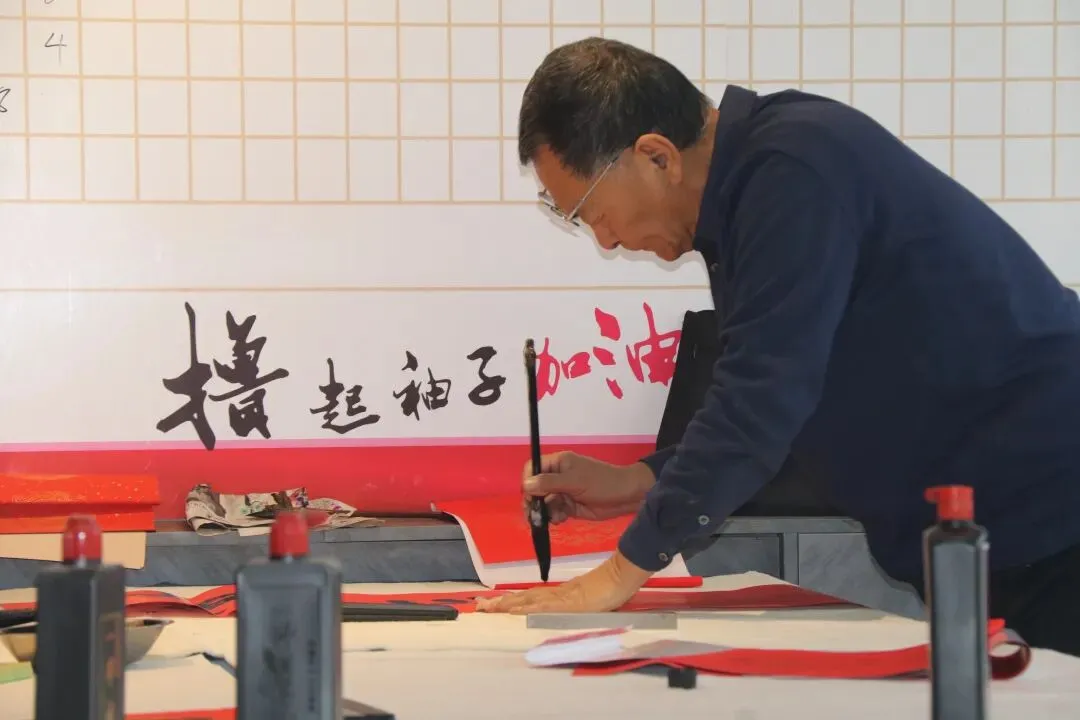 4
撸起袖子加油